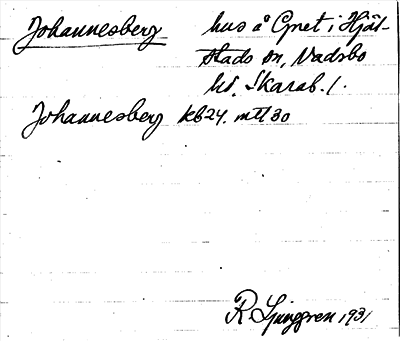 Johannesberg hus å Gnet i Hjäl-
stads sn, Vadsbo
hd. Skarab. l.
Johannesberg kb24. mtl 30
R Ljunggren 1931